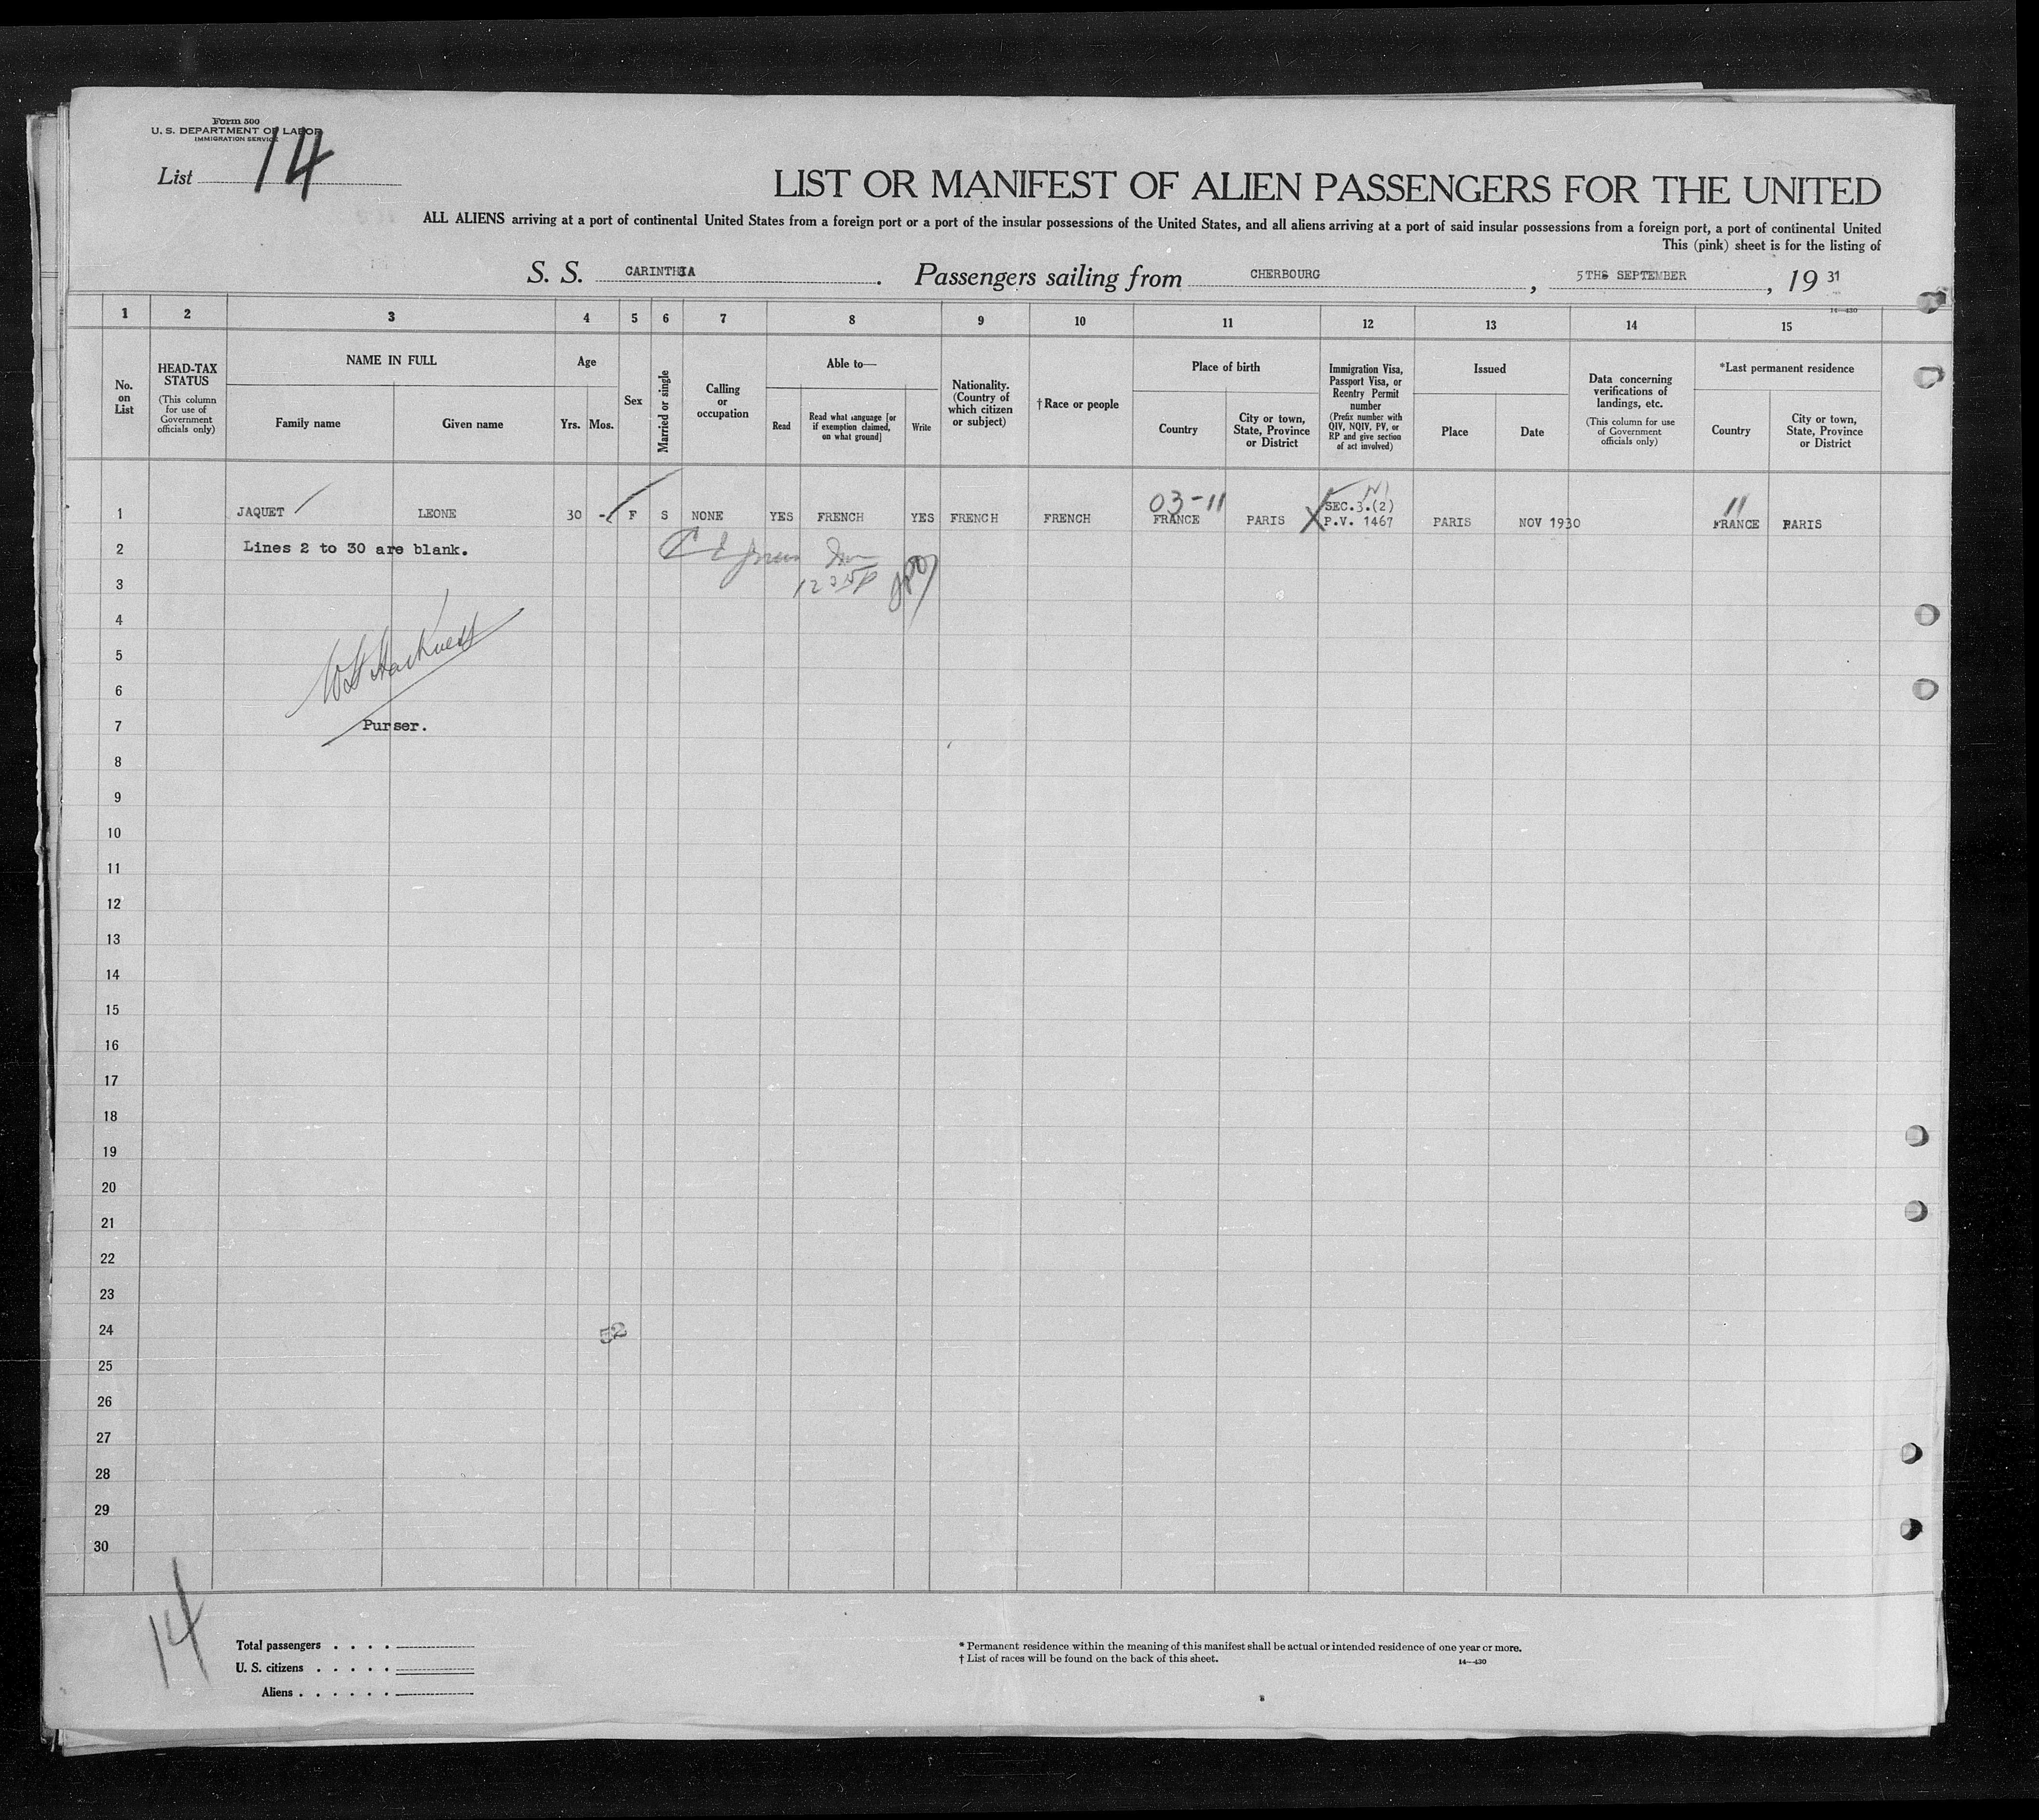 Form 500
U. S. DEPARTMENT OF LABOR
IMMIGRATION SERVICE
List 14
LIST OR MANIFEST OF ALIEN PASSENGERS FOR THE UNITED
ALL ALIENS arriving at a port of continental United States from a foreign port or a port of the insular possessions of the United States, and all aliens arriving at a port of said insular possessions from a foreign port, a port of continental United
This (pink) sheet is for the listing of
S. S. CARINTHIA. Passengers sailing from CHERBOURG, 5TH SEPTEMBER, 19 31
14—430
1 2 3 4 5 6 7 8 9 10 11 12 13 14 15
No. on List
HEAD-TAX STATUS
(This column for use of Government officials only)
NAME IN FULL
Family name
Given name
Age
Yrs. Mos.
Sex
Married or single
Calling or occupation
Able to—
Read
Read what language [or if exemption claimed, on what ground]
Write
Nationality. (Country of which citizen or subject)
†Race or people
Place of birth
Country
City or town, State, Province or District
Immigration Visa, Passport Visa, or Reentry Permit number
(Prefix number with QIV, NQIV, PV, or RP and give section of act involved)
Issued
Place
Date
Data concerning verifications of landings, etc.
(This column for use of Government officials only)
*Last permanent residence
Country
City or town, State, Province or District
03-11
SEC.3.(2)
11
1 JAQUET LEONE 30 - F S NONE YES FRENCH YES FRENCH FRENCH FRANCE PARIS P.V. 1467 PARIS NOV 1930 FRANCE PARIS
2 Lines 2 to 30 are blank.
3
4
5
6
7 Purser.
8
9
10
11
12
13
14
15
16
17
18
19
20
21
22
23
24 52
25
26
27
28
29
30
14
Total passengers . . . .
U. S. citizens . . . . .
Aliens . . . . . .
* Permanent residence within the meaning of this manifest shall be actual or intended residence of one year or more.
† List of races will be found on the back of this sheet.
14—430